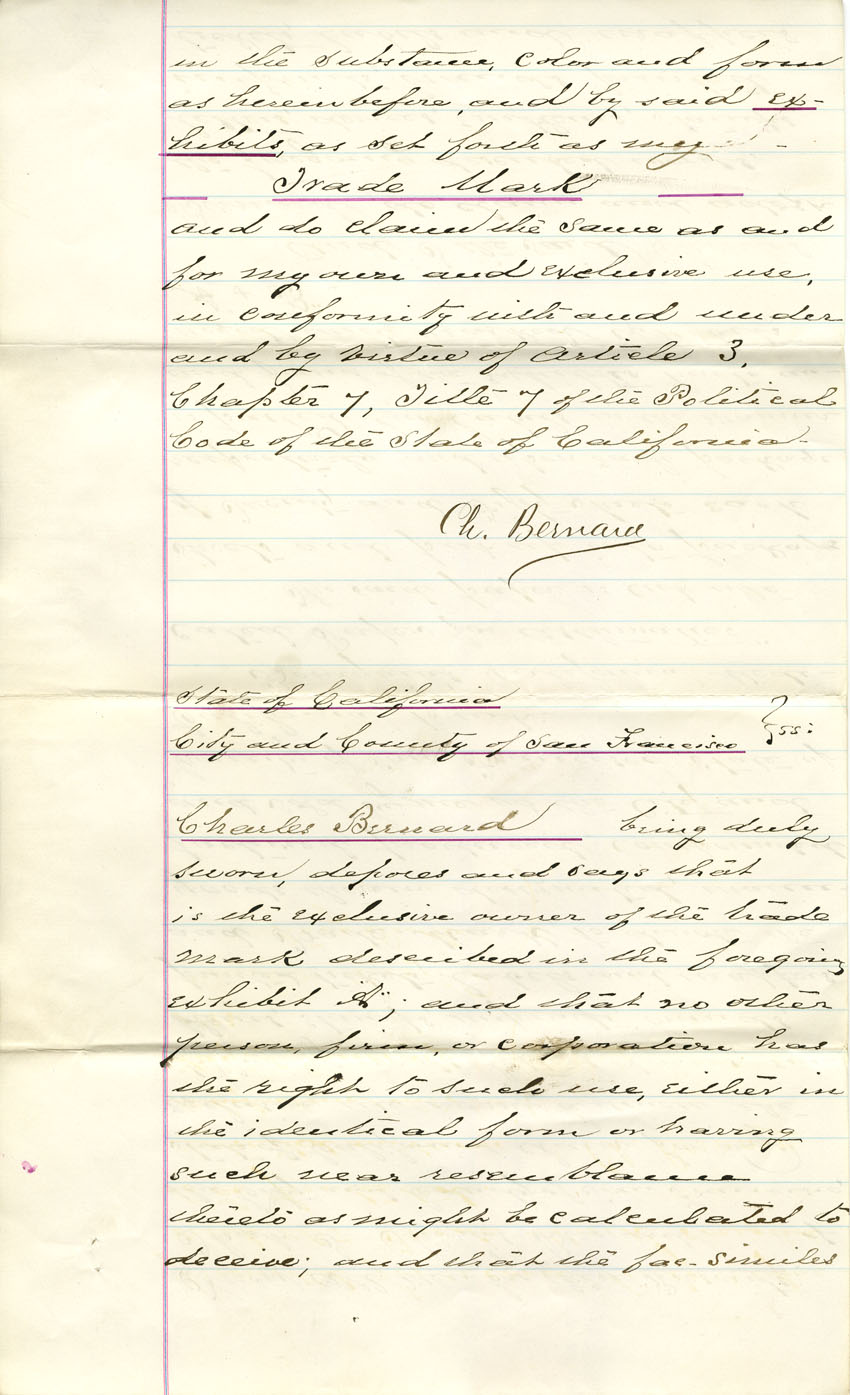 in the substance, color and form
as hereinbefore, and by said ex-
hibits, as set forth as my
Trade Mark
and do claim the same as and
for my own and exclusive use,
in conformity with and under
and by virtue of Article 3,
Chapter 7, Title 7 of the Political
Code of the State of California.
Ch. Bernard
State of California
City and County of San Francisco } ss:
Charles Bernard being duly
sworn, deposes and says that
is the exclusive owner of the trade
mark described in the foregoing
exhibit "A"; and that no other
person, firm, or corporation has
the right to such use, either in
the identical form or having
such near resemblance
thereto as might be calculated to
deceive; and that the fac-similes